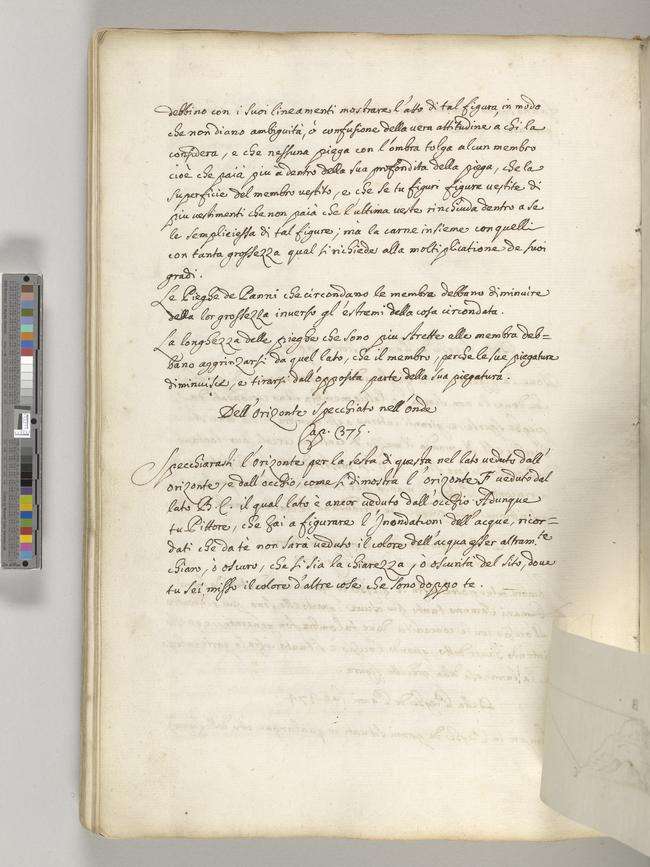 debbino con i suoi lineamenti mostrare l'atto di tal figura, in modo
che non diano ambiguità, ò confusione della vera attitudine a chi la
considera, e che nessuna piega con l'ombra tolga alcun membro
cioè che paia più à dentro della sua profondità della piega, che la
superficie del membro vestito, e che se tu figuri figure vestite di
più vestimenti che non paia che l'ultima veste rinchiuda dentro a se
le semplici ossa di tal figure; mà la carne insieme con quelli
con tanta grossezza qual si richiede alla moltiplicatione de suoi
gradi.
Le Pieghe de Panni che circondano le membra debbano diminuire
della lor grossezza inverso gl'estremi della cosa circondata.
La longhezza delle pieghe che sono più strette alle membra deb=
bano aggrinzarsi da quel lato, che il membro, perche le sue piegature
diminuisce, e tirarsi dall'opposita parte della sua piegatura.
Dell'Orizonte specchiato nell'onde
Cap. 375.
Specchiarassi l'orizonte per la sesta di questa nel lato veduto dall'
orizonte, e dall'occhio, come si dimostra l'orizonte F veduto dal
lato B.C. il qual lato è ancor veduto dall'occhio. Adunque
tu Pittore, che hai a figurare l'Jnondationi dell'acque, ricor=
dati che da tè non sarà veduto il colore dell'acqua esser altram.te
chiaro, ò oscuro, che si sia la chiarezza, ò oscurità del sito, dove
tu sei, misto il colore d'altre cose che sono doppo te.
B